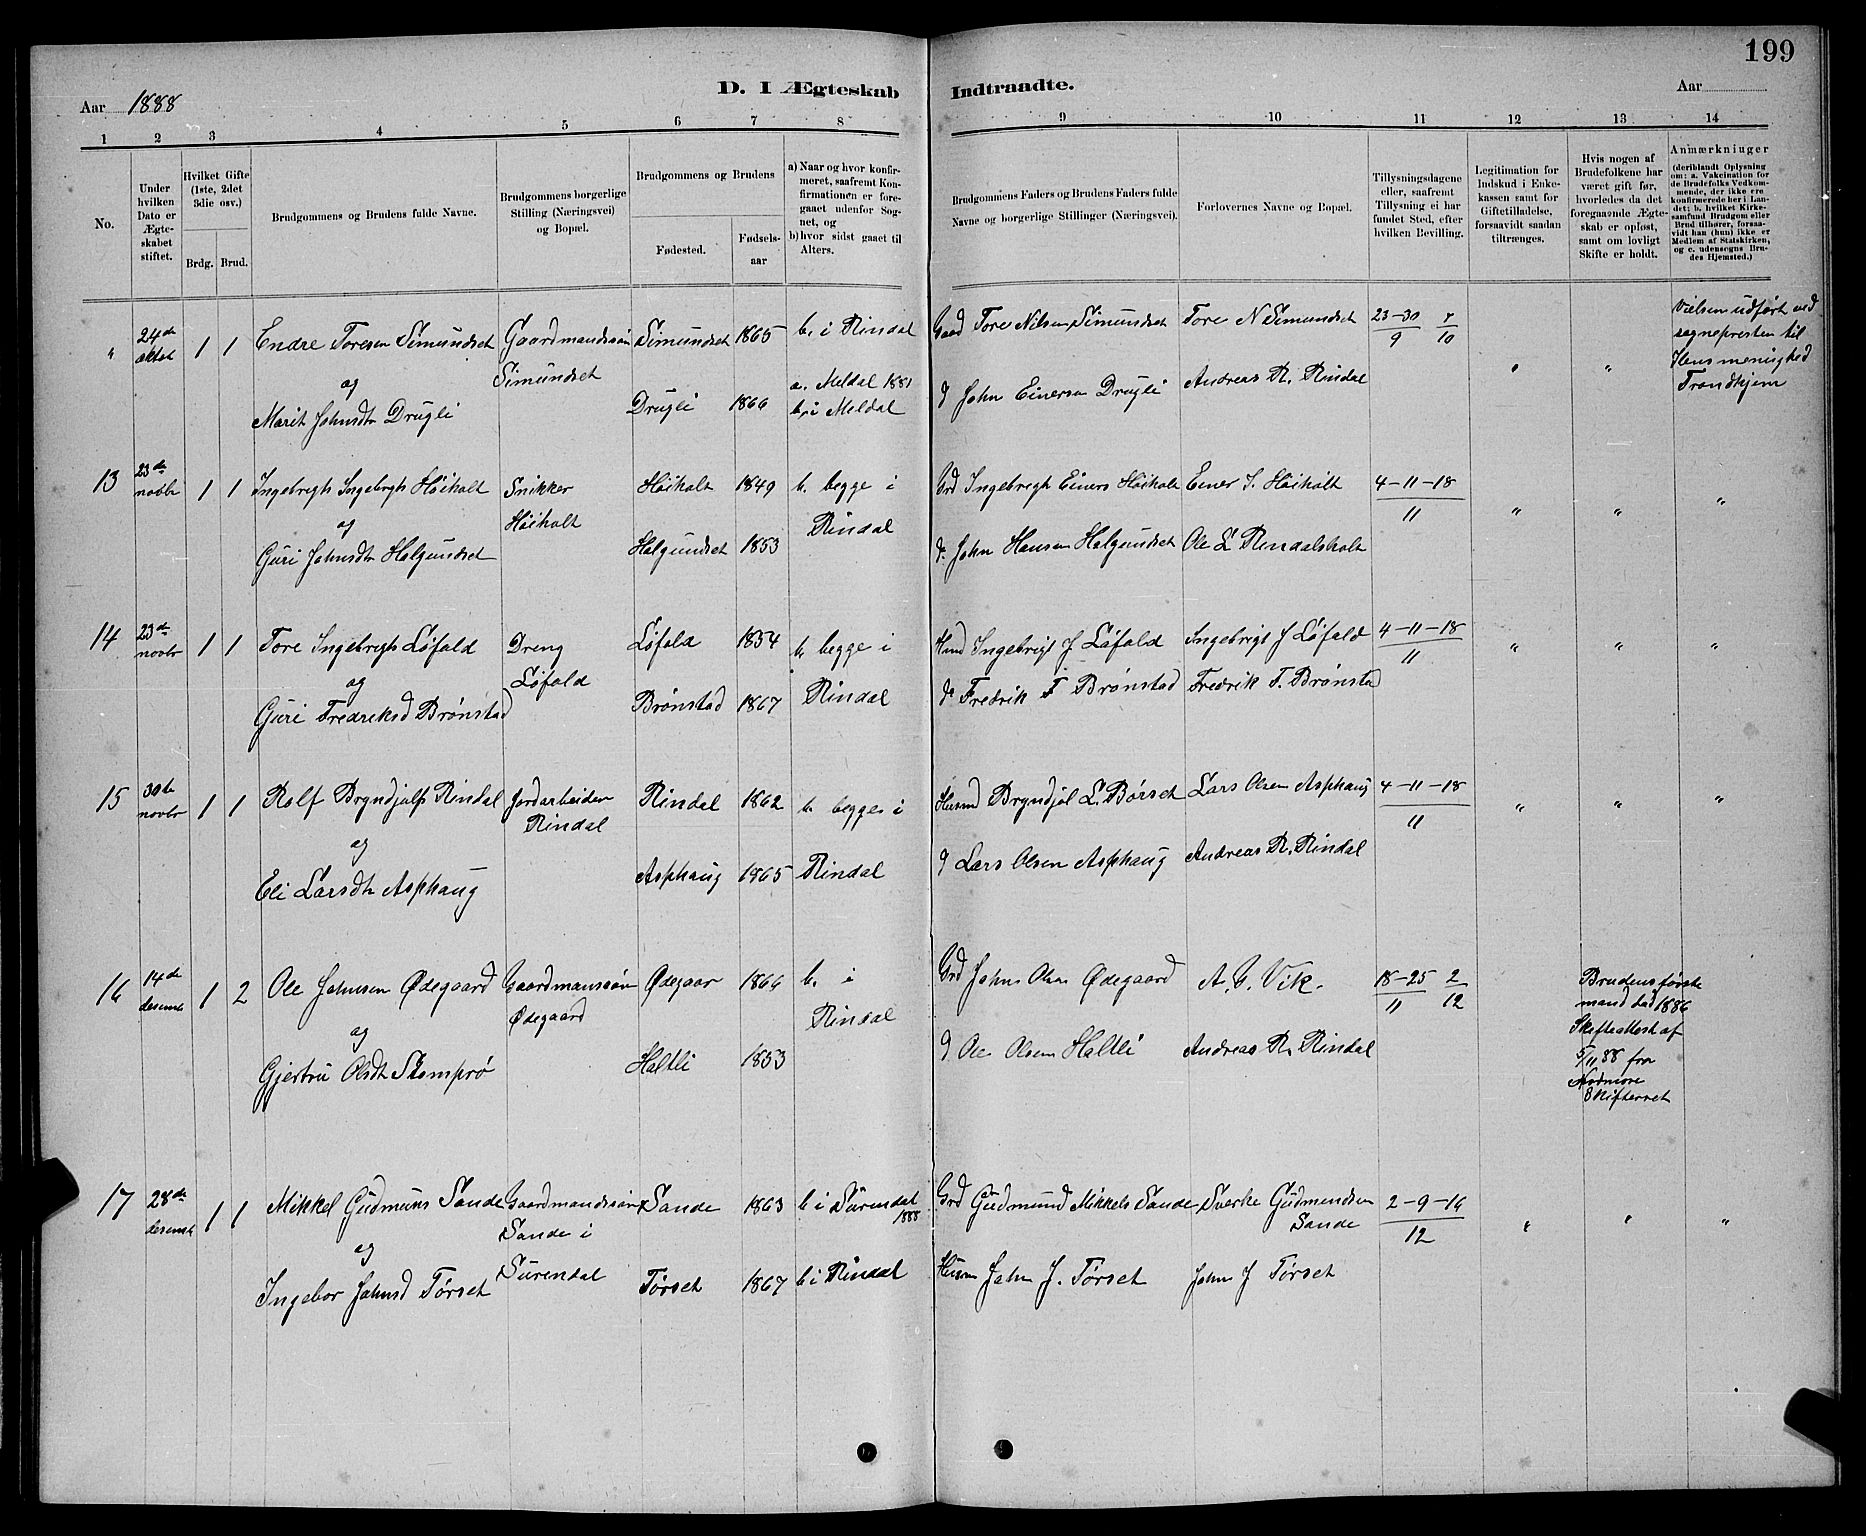 199
D. I Ægteskab Indtraadte.
Aar 1888
Aar
1 2 3 4 5 6 7 8 9 10 11 12 13 14
No.
Under hvilken Dato er Ægteskabet stiftet.
Hvilket Gifte (1ste, 2det 3die osv.)
Brdg. Brud.
Brudgommens og Brudens fulde Navne.
Brudgommens borgerlige Stilling (Næringsvei) og Bopæl.
Brudgommens og Brudens
Fødested.
Fødselsaar
a) Naar og hvor konfirmeret, saafremt Konfirmationen er foregaaet udenfor Sognet, og
b) hvor sidst gaaet til Alters.
Brudgommens Faders og Brudens Faders fulde Navne og borgerlige Stillinger (Næringsvei).
Forlovernes Navne og Bopæl.
Tillysningsdagene eller, saafremt Tillysning ei har fundet Sted, efter hvilken Bevilling.
Legitimation for Indskud i Enkekassen samt for Giftetilladelse, forsaavidt saadan tiltrænges.
Hvis nogen af Brudefolkene har været gift før, hvorledes da det foregaaende Ægteskab er opløst, samt om lovligt Skifte er holdt.
Anmærkninger
(deriblandt Oplysning om: a. Vakcination for de Brudefolks Vedkommende, der ikke ere konfirmerede her i Landet; b. hvilket Kirkesamfund Brudgom eller Brud tilhører, forsaavidt han (hun) ikke er Medlem af Statskirken, og c. udensogns Brudes Hjemsted.)
" 24de oktbt 1 1 Endre Toresen Simundset
og
Marit Johnsdtr Drugli
Gaardmandssøn
Simundset
Simundset 1865 b. i Rindal
Drugli 1866 a. Meldal 1881
b. i Meldal
Gaard Tore Nilsen Simundset Tore N Simundset 23-30/9 7/10
d John Einersen Drugli Andreas R. Rindal
" "
Vielsen udført ved
sognepresten til
Ilens menighed
Trondhjem
13 23de novbr 1 1 Ingebregt Ingebregts Høiholt
og
Guri Johnsdtr Halgundset
Snikker
Høiholt
Høiholt 1849 b. begge i
Halgundset 1853 Rindal
Grd Ingebregt Einers Høiholt Einer I. Høiholt 4-11-18/11
d. John Hansen Halgundset Ole L Rindalsholt
" " "
14 23de novbr 1 1 Tore Ingebregts Løfald
og
Guri Fredriksd Brønstad
Dreng
Løfald
Løfald 1854 b. begge i
Brønstad 1867 Rindal
Husmd Ingebrigt J Løfald Ingebrigt J Løfald 4-11-18/11
do Fredrik F Brønstad Fredrik F. Brønstad
" " "
15 30te novbr 1 1 Rolf Bryndjulfs Rindal
og
Eli Larsdtr Asphaug
Jordarbeider
Rindal
Rindal 1862 b. begge i
Asphaug 1865 Rindal
Husmd Bryndjøl L. Børset Lars Olsen Asphaug 4-11-18/11
d Lars Olsen Asphaug Andreas R. Rindal
" " "
16 14de desemb 1 2 Ole Johnsen Ødegaard
og
Gjertru Olsdtr Stomprø
Gaardmanssøn
Ødegaard
Ødegaar 1866 b. i
Haltli 1853 Rindal
Grd John Olsen Ødegaard A. G. Vik. 18-25/11 2/12
d Ole Olsen Haltli Andreas R. Rindal
Brudens første
mand død 1886
Skifteattest af
5/11 88 fra
Nordmøre
Skifteret
17 28de desemb 1 1 Mikkel Gudmuns Sande
og
Ingebor Johnsd Tørset
Gaardmandssøn
Sande i
Surendal
Sande 1863 b i Surendal 1888
Tørset 1867 b i Rindal
Grd Gudmund Mikkels Sande Sverke Gudmundsen
Sande 2-9-16/12
Husm John J. Tørset John J Tørset
" " "